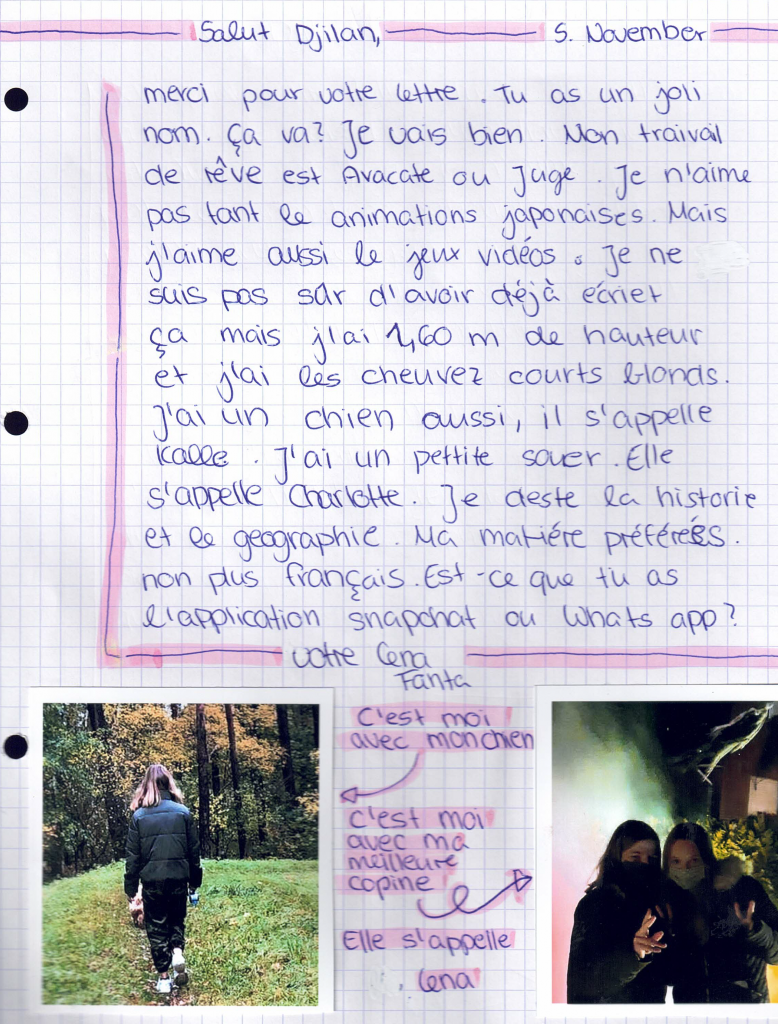 Salut Djilan,
5. November
merci pour votre lettre. Tu as un joli
nom. Ça va? Je vais bien. Mon traivail
de rêve est Avacate ou Juge. Je n'aime
pas tant le animations japonaises. Mais
j'aime aussi le jeux vidéos. Je ne
suis pas sûr d'avoir déjà écriet
ça mais j'ai 1,60 m de hauteur
et j'ai les cheuvez courts blonds.
J'ai un chien aussi, il s'appelle
Kalle. J'ai un pettite souer. Elle
s'appelle Charlotte. Je deste la historie
et le geographie. Ma matiére préférées.
non plus français. Est-ce que tu as
l'application snapchat ou Whats app?
votre Lena
Fanta
C'est moi
avec mon chien
c'est moi
avec ma
meilleure
copine
Elle s'appelle
Lena